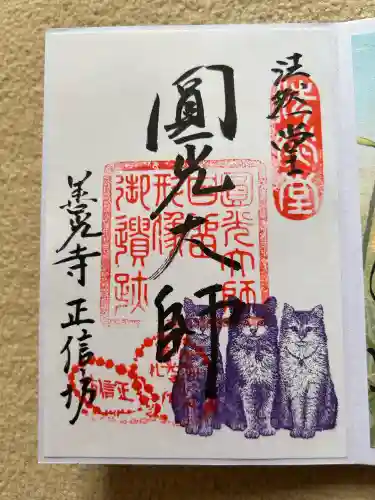 法然堂
法然堂
圓光大師
圓光大師
御遺跡
善光寺 正信坊
正信